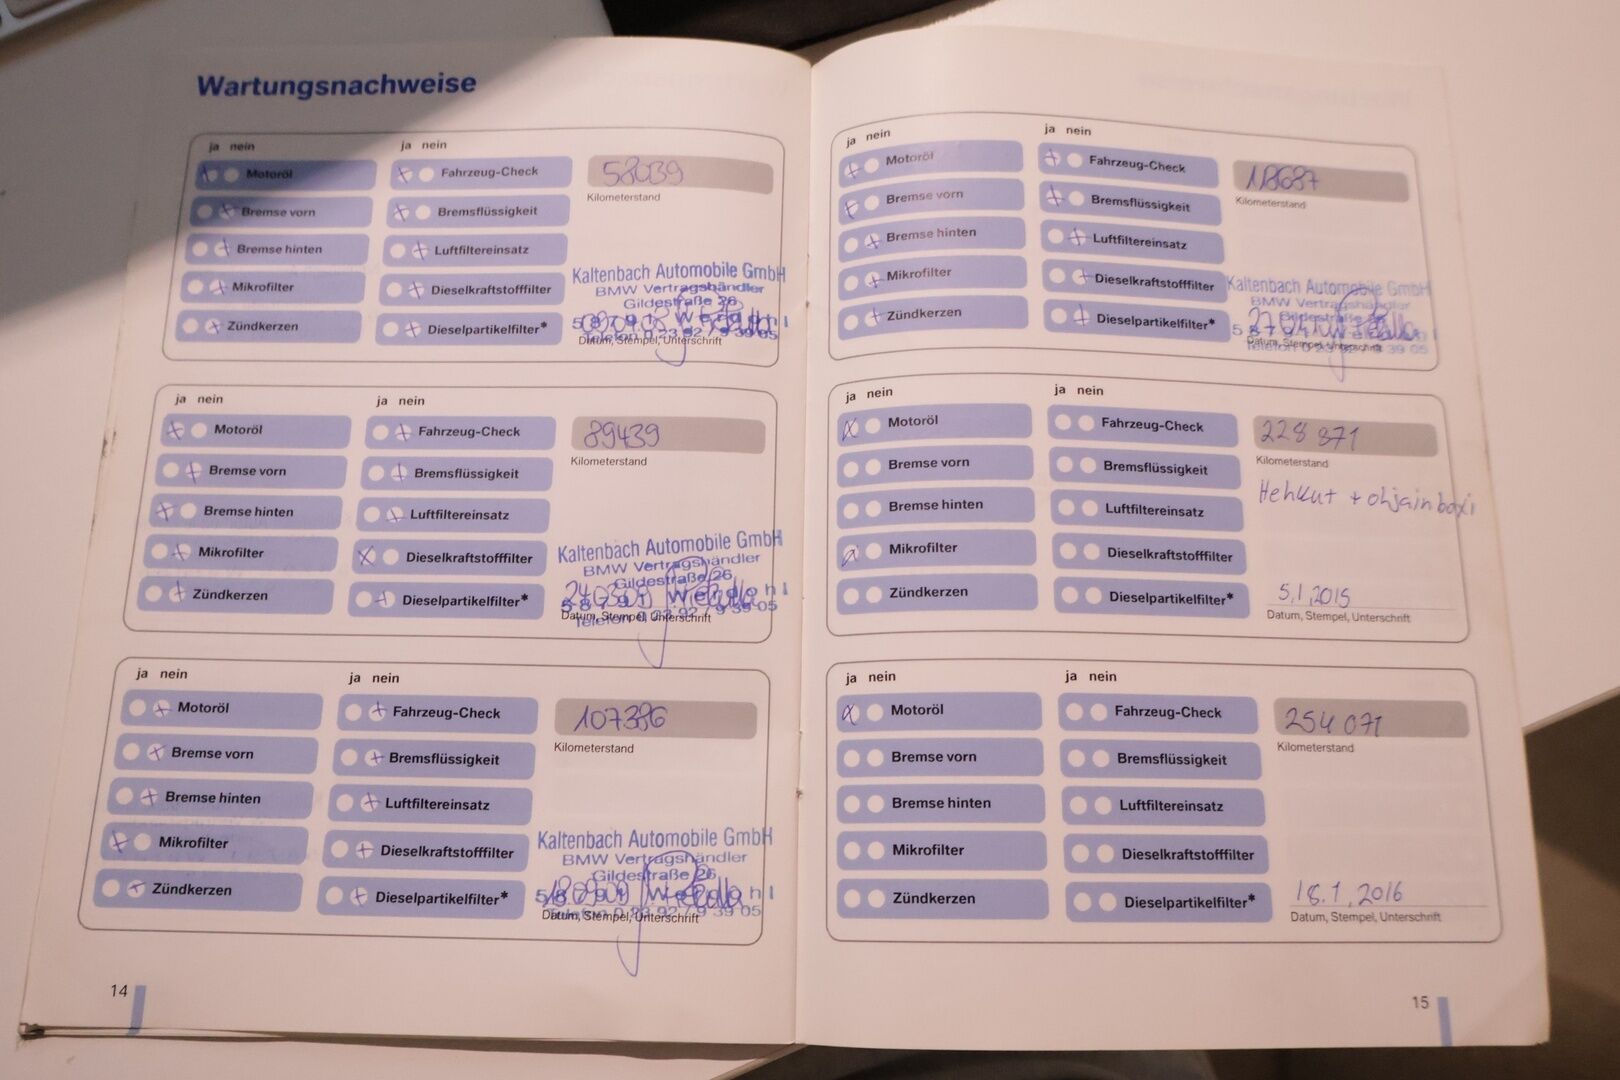 Wartungsnachweise
ja nein
ja nein
Motoröl
Fahrzeug-Check
58039
Bremse vorn
Bremsflüssigkeit
Kilometerstand
Bremse hinten
Luftfiltereinsatz
Mikrofilter
Dieselkraftstofffilter
Zündkerzen
Dieselpartikelfilter*
Kaltenbach Automobile GmbH
BMW Vertragshändler
Gildestraße 26
58791 Werdohl
Telefon 0 23 92 / 9 39 05
Datum, Stempel, Unterschrift
ja nein
ja nein
Motoröl
Fahrzeug-Check
89439
Bremse vorn
Bremsflüssigkeit
Kilometerstand
Bremse hinten
Luftfiltereinsatz
Mikrofilter
Dieselkraftstofffilter
Zündkerzen
Dieselpartikelfilter*
Kaltenbach Automobile GmbH
BMW Vertragshändler
Gildestraße 26
58791 Werdohl
Telefon 0 23 92 / 9 39 05
Datum, Stempel, Unterschrift
ja nein
ja nein
Motoröl
Fahrzeug-Check
107386
Bremse vorn
Bremsflüssigkeit
Kilometerstand
Bremse hinten
Luftfiltereinsatz
Mikrofilter
Dieselkraftstofffilter
Zündkerzen
Dieselpartikelfilter*
Kaltenbach Automobile GmbH
BMW Vertragshändler
Gildestraße 26
58791 Werdohl
Telefon 0 23 92 / 9 39 05
Datum, Stempel, Unterschrift
14
ja nein
ja nein
Motoröl
Fahrzeug-Check
Bremse vorn
Bremsflüssigkeit
Kilometerstand
Bremse hinten
Luftfiltereinsatz
Mikrofilter
Dieselkraftstofffilter
Zündkerzen
Dieselpartikelfilter*
Kaltenbach Automobile GmbH
BMW Vertragshändler
Gildestraße 26
58791 Werdohl
Telefon 0 23 92 / 9 39 05
Datum, Stempel, Unterschrift
ja nein
ja nein
Motoröl
Fahrzeug-Check
228 871
Bremse vorn
Bremsflüssigkeit
Kilometerstand
Bremse hinten
Luftfiltereinsatz
Hehkut + ohjainboxi
Mikrofilter
Dieselkraftstofffilter
Zündkerzen
Dieselpartikelfilter*
5.1.2015
Datum, Stempel, Unterschrift
ja nein
ja nein
Motoröl
Fahrzeug-Check
254 071
Bremse vorn
Bremsflüssigkeit
Kilometerstand
Bremse hinten
Luftfiltereinsatz
Mikrofilter
Dieselkraftstofffilter
Zündkerzen
Dieselpartikelfilter*
18.1.2016
Datum, Stempel, Unterschrift
15